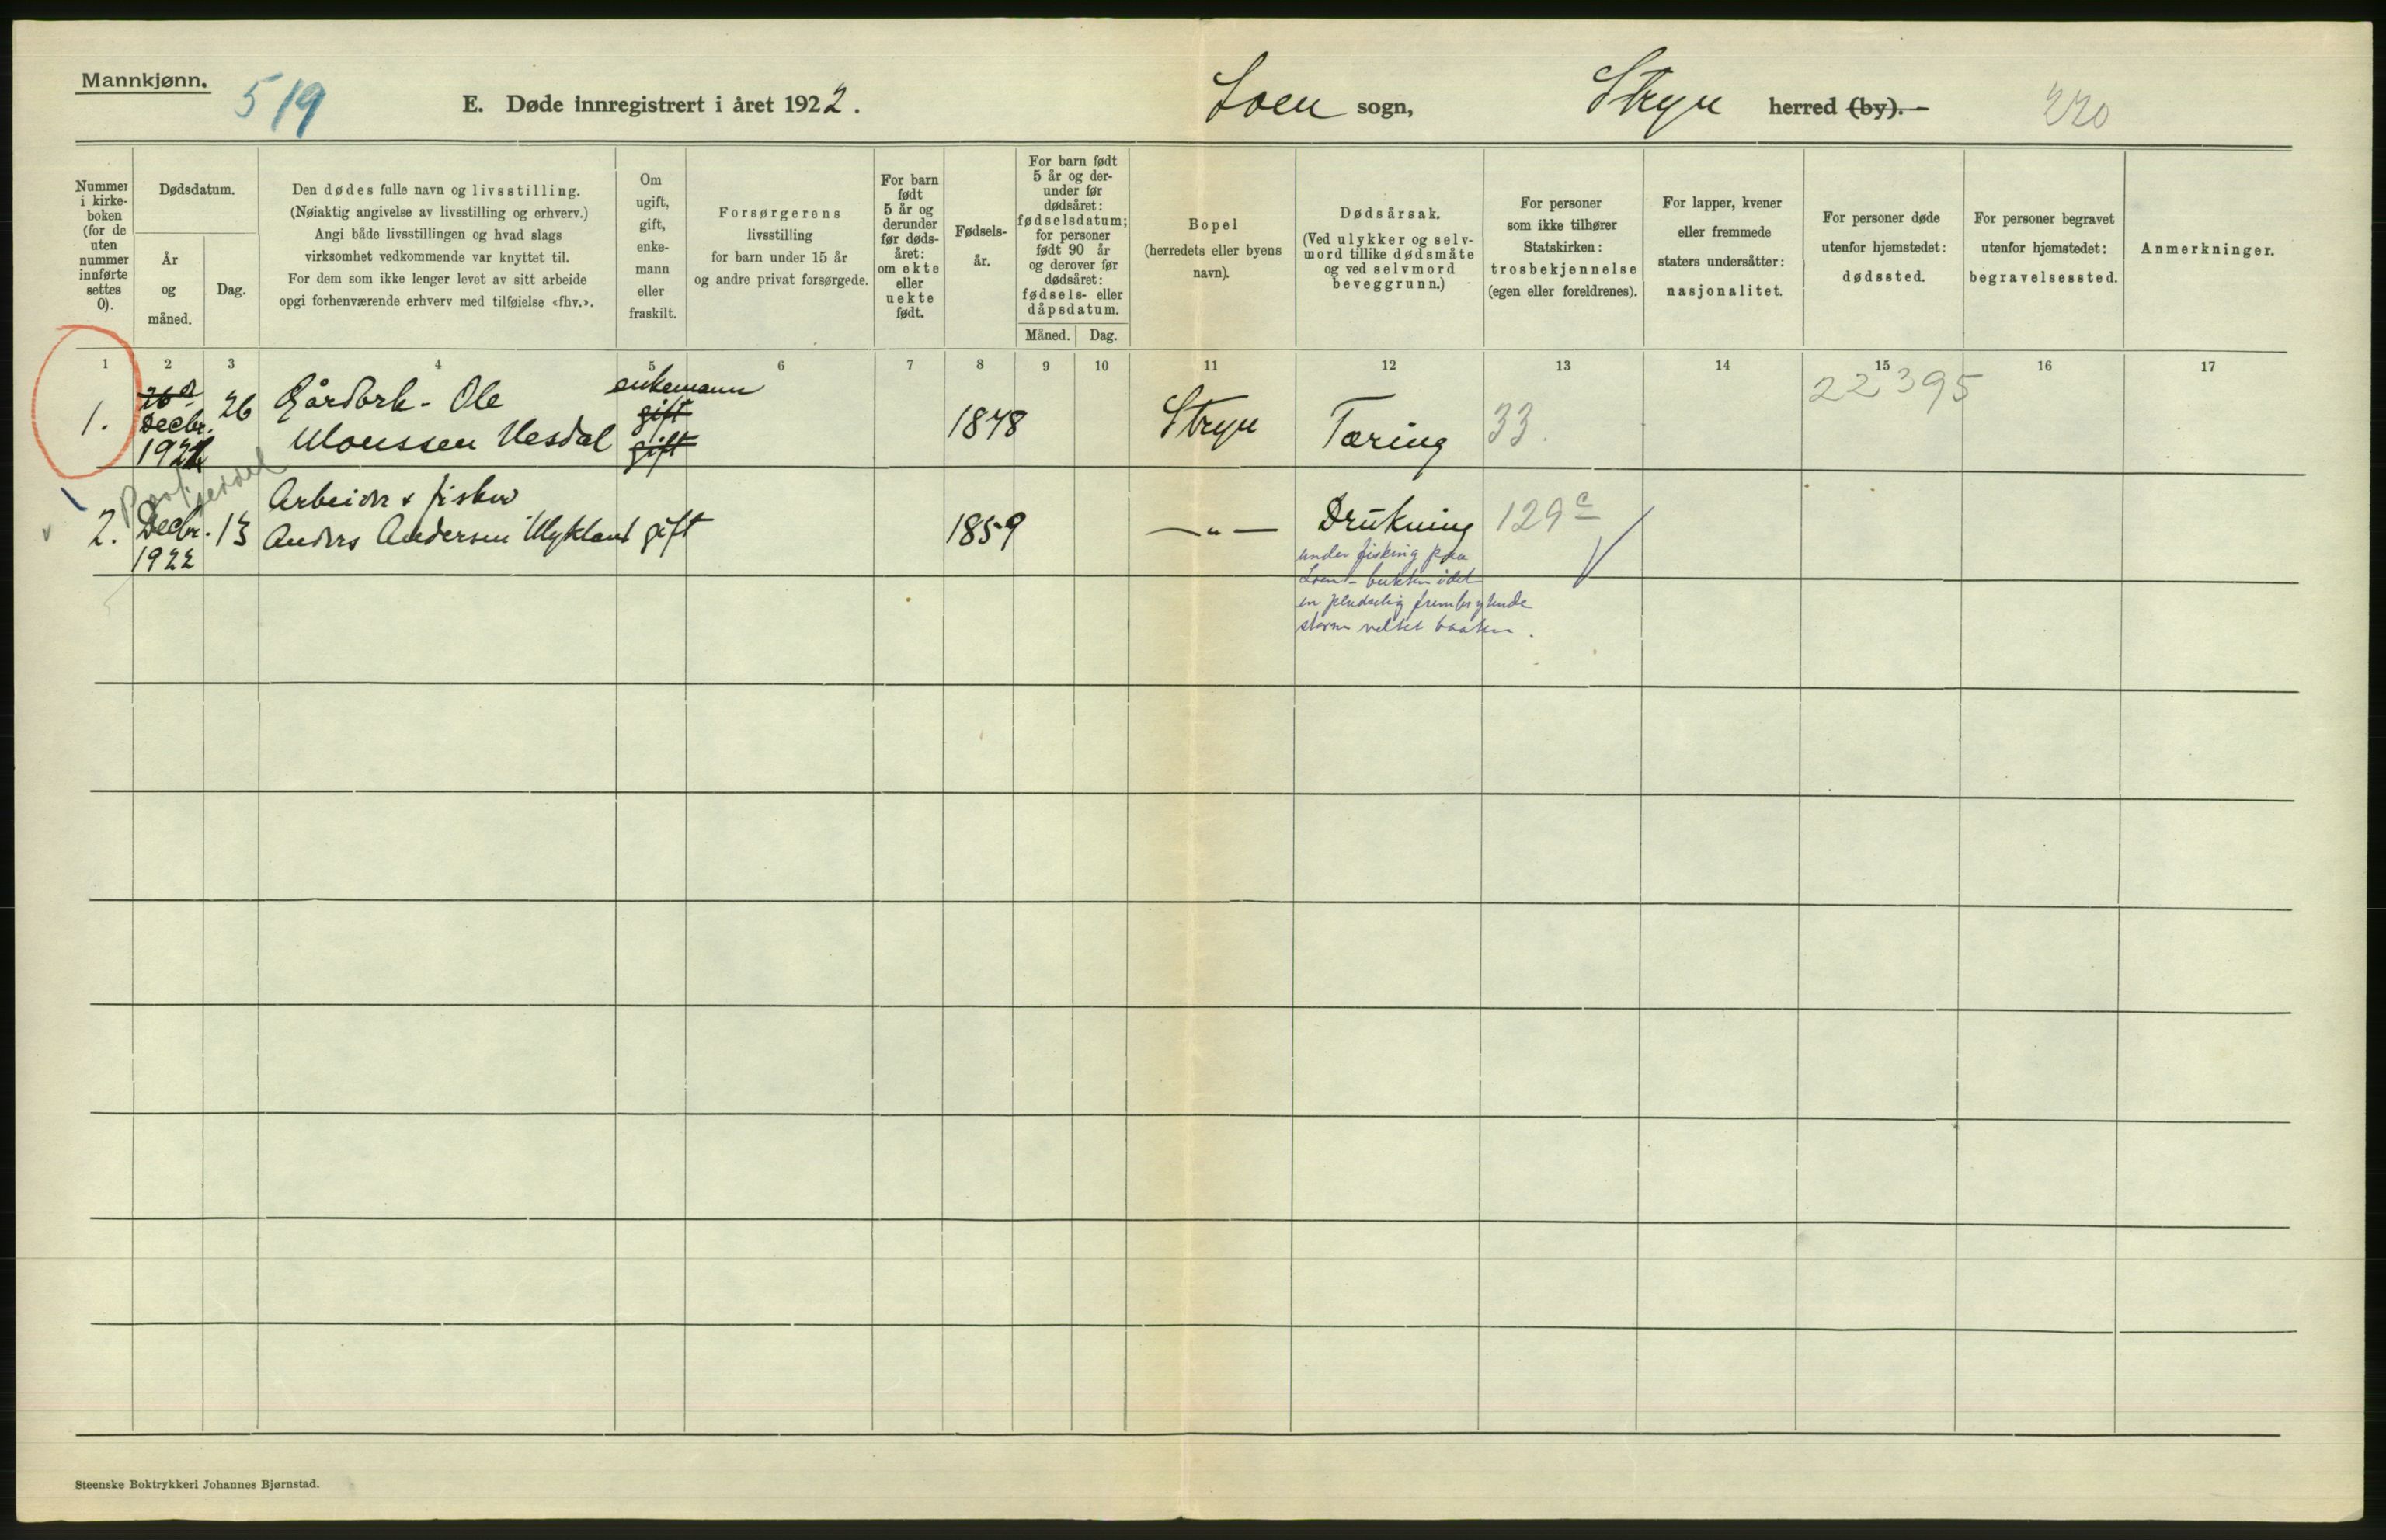 Mannkjønn.
519
E. Døde innregistrert i året 1922.
Loen sogn,
Stryn herred (by). —
220
Nummer
i kirke-
boken
(for de
uten
nummer
innførte
settes
0).
Dødsdatum.
År
og
måned.
Dag.
Den dødes fulle navn og livsstilling.
(Nøiaktig angivelse av livsstilling og erhverv.)
Angi både livsstillingen og hvad slags
virksomhet vedkommende var knyttet til.
For dem som ikke lenger levet av sitt arbeide
opgi forhenværende erhverv med tilføielse «fhv.».
Om
ugift,
gift,
enke-
mann
eller
fraskilt.
Forsørgerens
livsstilling
for barn under 15 år
og andre privat forsørgede.
For barn
født
5 år og
derunder
før døds-
året:
om ekte
eller
uekte
født.
Fødsels-
år.
For barn født
5 år og der-
under før
dødsåret:
fødselsdatum;
for personer
født 90 år
og derover før
dødsåret:
fødsels- eller
dåpsdatum.
Måned.
Dag.
Bopel
(herredets eller byens
navn).
Dødsårsak.
(Ved ulykker og selv-
mord tillike dødsmåte
og ved selvmord
beveggrunn.)
For personer
som ikke tilhører
Statskirken:
trosbekjennelse
(egen eller foreldrenes).
For lapper, kvener
eller fremmede
staters undersåtter:
nasjonalitet.
For personer døde
utenfor hjemstedet:
dødssted.
For personer begravet
utenfor hjemstedet:
begravelsessted.
Anmerkninger.
1 2 3 4 5 6 7 8 9 10 11 12 13 14 15 16 17
22395
1.
26
Decbr.
1922
26
Gårdbrk. Ole
Monssen Nesdal
enkemann
gift
gift
1848
Stryn
Tæring
33.
2.
Decbr.
1922
13
Arbeider & fisker
Anders Andersen Myklant
gift
1859
— " —
Drukning
129 c
under fisking paa
Loen-bukten idet
en pludselig frembrytende
storm veltet baaten.
Steenske Boktrykkeri Johannes Bjørnstad.